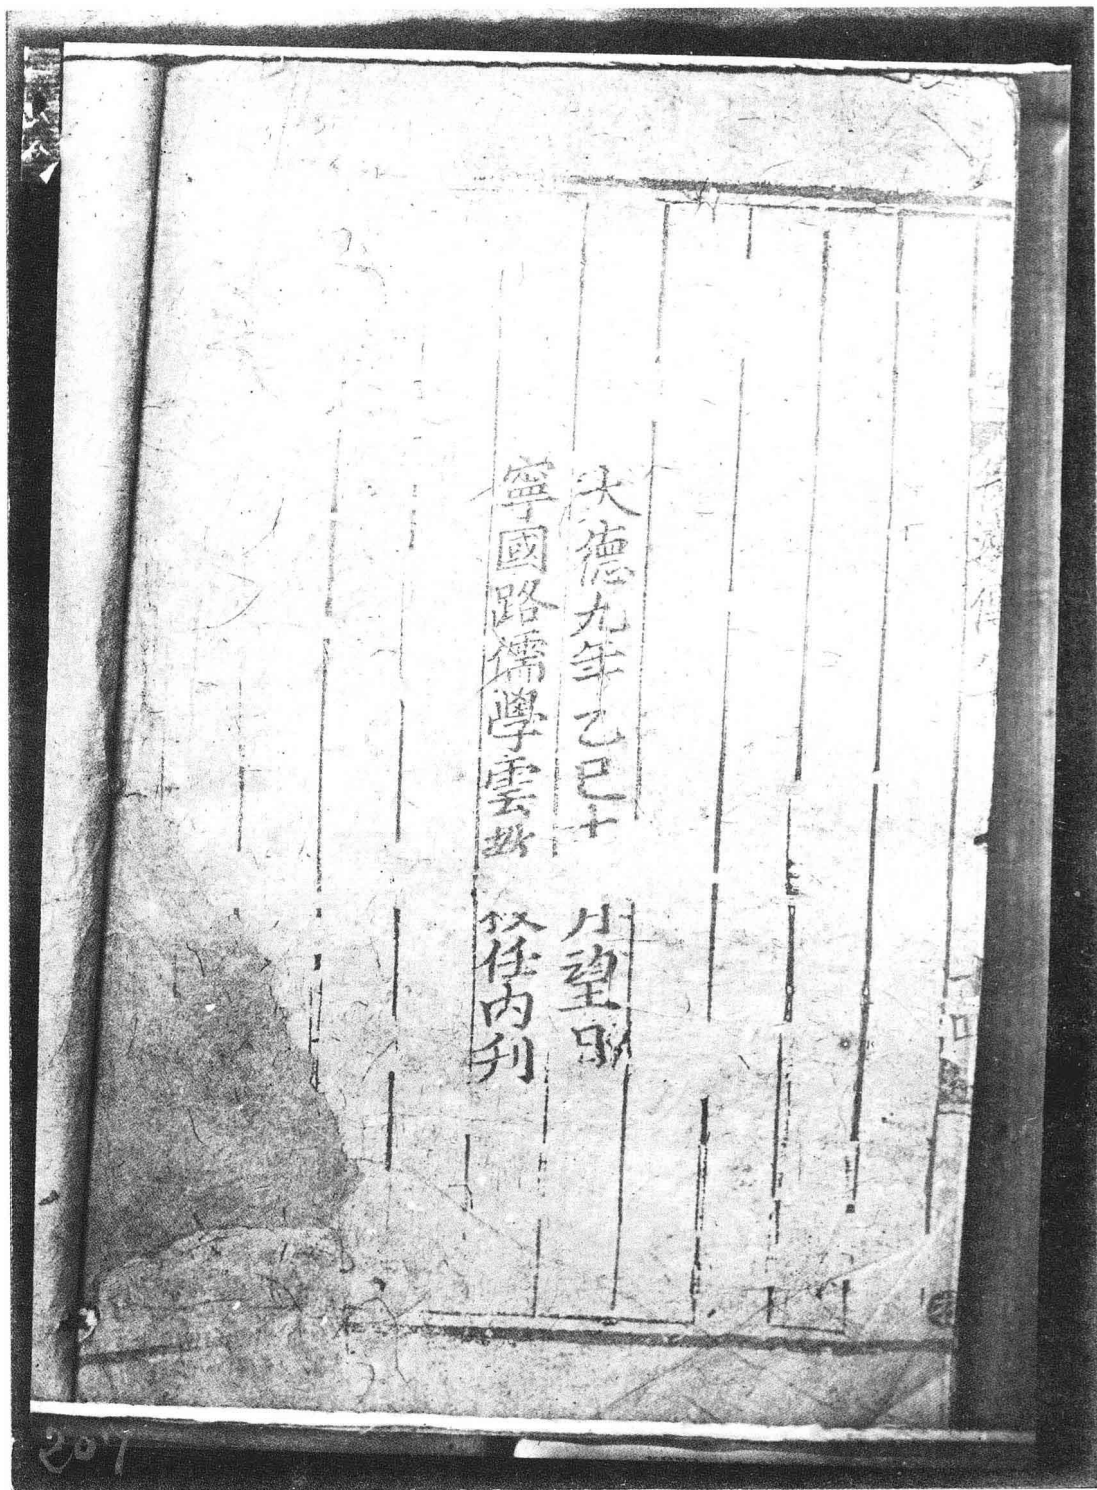 大德九年乙巳十月望日
寧國路儒學雲教授任內刊
207